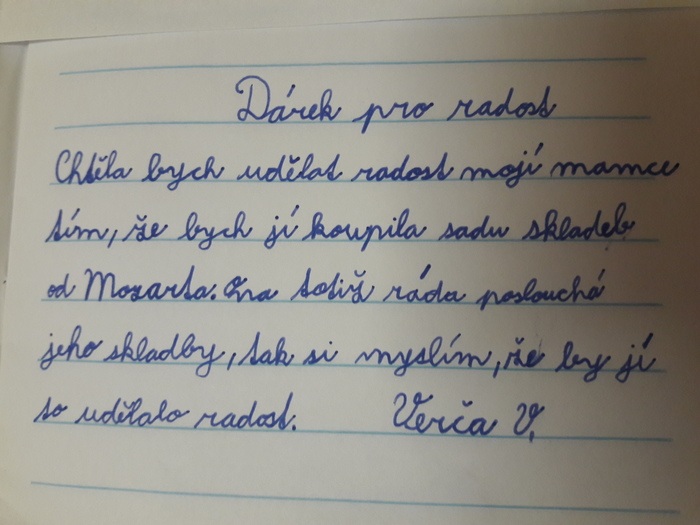 Dárek pro radost
Chtěla bych udělat radost mojí mamce
tím, že bych jí koupila sadu skladeb
od Mozarta. Ona totiž ráda poslouchá
jeho skladby, tak si myslím, že by jí
to udělalo radost. Verča V.